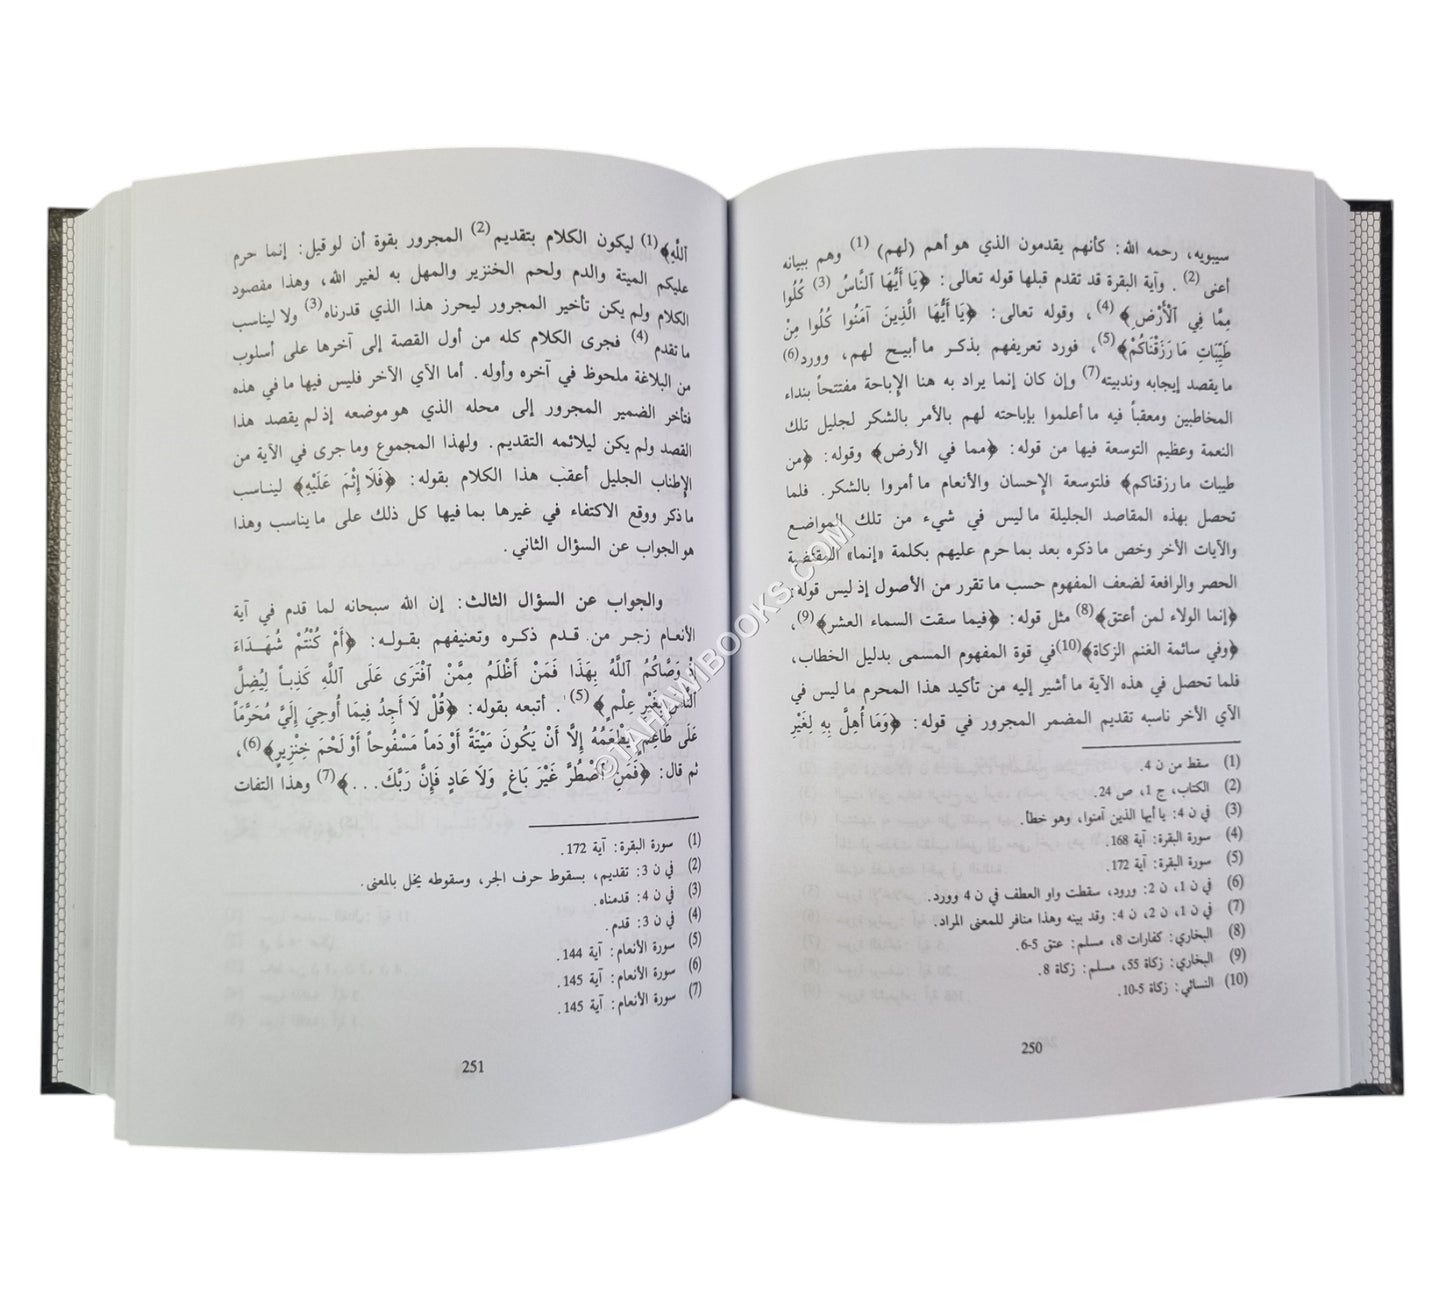 سيبويه، رحمه الله: كأنهم يقدمون الذي هو أهم (لهم) (1) وهم ببيانه
أعنى (2) . وآية البقرة قد تقدم قبلها قوله تعالى: ﴿يَا أَيُّهَا ٱلنَّاسُ (3) كُلُوا
مِمَّا فِي ٱلْأَرْضِ﴾ (4) ، وقوله تعالى: ﴿يَا أَيُّهَا الَّذِينَ آمَنُوا كُلُوا مِنْ
طَيِّبَاتِ مَا رَزَقْنَاكُمْ﴾ (5) ، فورد تعريفهم بذكر ما أبيح لهم، وورد (6)
ما يقصد إيجابه وندبيته (7) وإن كان إنما يراد به هنا الإباحة مفتتحاً بنداء
المخاطبين ومعقباً فيه ما أعلموا بإباحته لهم بالأمر بالشكر لجليل تلك
النعمة وعظيم التوسعة فيها من قوله: ﴿مما في الأرض﴾ وقوله: ﴿من
طيبات ما رزقناكم﴾ فلتوسعة الإحسان والأنعام ما أمروا بالشكر. فلما
تحصل بهذه المقاصد الجليلة ما ليس في شيء من تلك المواضع
والآيات الأخر وخص ما ذكره بعد بما حرم عليهم بكلمة «إنما» المقتضية
الحصر والرافعة لضعف المفهوم حسب ما تقرر من الأصول إذ ليس قوله:
﴿إنما الولاء لمن أعتق﴾ (8) مثل قوله: ﴿فيما سقت السماء العشر﴾ (9) ،
﴿وفي سائمة الغنم الزكاة﴾ (10) في قوة المفهوم المسمى بدليل الخطاب،
فلما تحصل في هذه الآية ما أشير إليه من تأكيد هذا المحرم ما ليس في
الآي الأخر ناسبه تقديم المضمر المجرور في قوله: ﴿وَمَا أُهِلَّ بِهِ لِغَيْرِ
(1) سقط من ن 4.
(2) الكتاب، ج 1، ص 24.
(3) في ن 4: يا أيها الذين آمنوا، وهو خطأ.
(4) سورة البقرة: آية 168.
(5) سورة البقرة: آية 172.
(6) في ن 1، ن 2: ورود، سقطت واو العطف في ن 4 وورد.
(7) في ن 1، ن 2، ن 4: وقد بينه وهذا منافر للمعنى المراد.
(8) البخاري: كفارات 8، مسلم: عتق 5-6.
(9) البخاري: زكاة 55، مسلم: زكاة 8.
(10) النسائي: زكاة 5-10.
250
ٱللَّهِ﴾ (1) ليكون الكلام بتقديم (2) المجرور بقوة أن لو قيل: إنما حرم
عليكم الميتة والدم ولحم الخنزير والمهل به لغير الله، وهذا مقصود
الكلام ولم يكن تأخير المجرور ليحرز هذا الذي قدرناه (3) ولا ليناسب
ما تقدم (4) فجرى الكلام كله من أول القصة إلى آخرها على أسلوب
من البلاغة ملحوظ في آخره وأوله. أما الآي الآخر فليس فيها ما في هذه
فتأخر الضمير المجرور إلى محله الذي هو موضعه إذ لم يقصد هذا
القصد ولم يكن ليلائمه التقديم. ولهذا المجموع وما جرى في الآية من
الإطناب الجليل أعقب هذا الكلام بقوله: ﴿فَلَا إِثْمَ عَلَيْهِ﴾ ليناسب
ما ذكر ووقع الاكتفاء في غيرها بما فيها كل ذلك على ما يناسب وهذا
هو الجواب عن السؤال الثاني.
والجواب عن السؤال الثالث: إن الله سبحانه لما قدم في آية
الأنعام زجر من قدم ذكره وتعنيفهم بقوله: ﴿أَمْ كُنْتُمْ شُهَدَاءَ
إِذْ وَصَّاكُمُ ٱللَّهُ بِهَذَا فَمَنْ أَظْلَمُ مِمَّنْ ٱفْتَرَى عَلَى ٱللَّهِ كَذِباً لِيُضِلَّ
النَّاسَ بِغَيْرِ عِلْمٍ﴾ (5) . أتبعه بقوله: ﴿قُلْ لَا أَجِدُ فِيمَا أُوحِيَ إِلَيَّ مُحَرَّمَاً
عَلَى طَاعِمٍ يَطْعَمُهُ إِلَّا أَنْ يَكُونَ مَيْتَةً أَوْ دَماً مَسْفُوحاً أَوْ لَحْمَ خِنْزِيرٍ﴾ (6) ،
ثم قال: ﴿فَمَنِ ٱضْطُرَّ غَيْرَ بَاغٍ وَلَا عَادٍ فَإِنَّ رَبَّكَ...﴾ (7) وهذا التفات
(1) سورة البقرة: آية 172.
(2) في ن 3: تقديم، بسقوط حرف الجر، وسقوطه يخل بالمعنى.
(3) في ن 4: قدمناه.
(4) في ن 3: قدم.
(5) سورة الأنعام: آية 144.
(6) سورة الأنعام: آية 145.
(7) سورة الأنعام: آية 145.
251
©JAHAWIBOOKS.COM